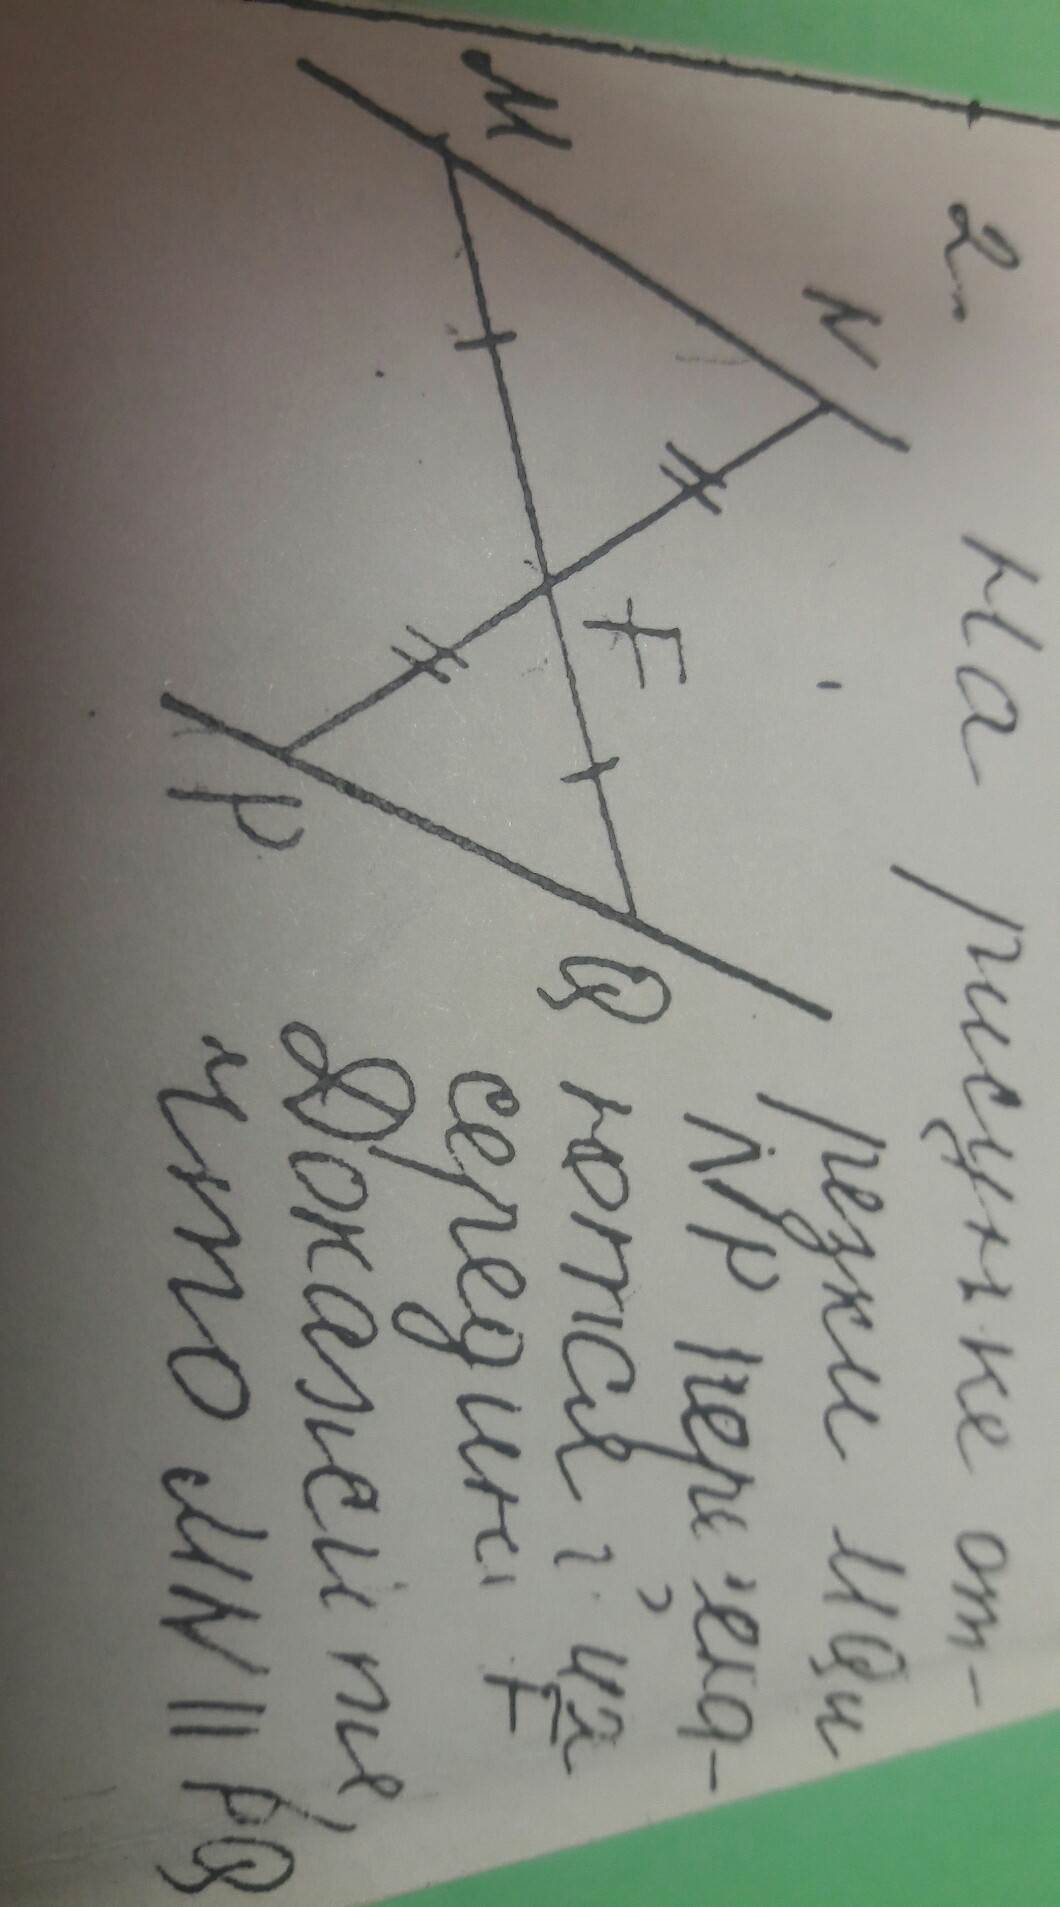 2. На рисунке от-
резки MQ и
NP пересека-
ются в их
середине F
Докажите,
что MN || PQ
M
N
F
P
Q